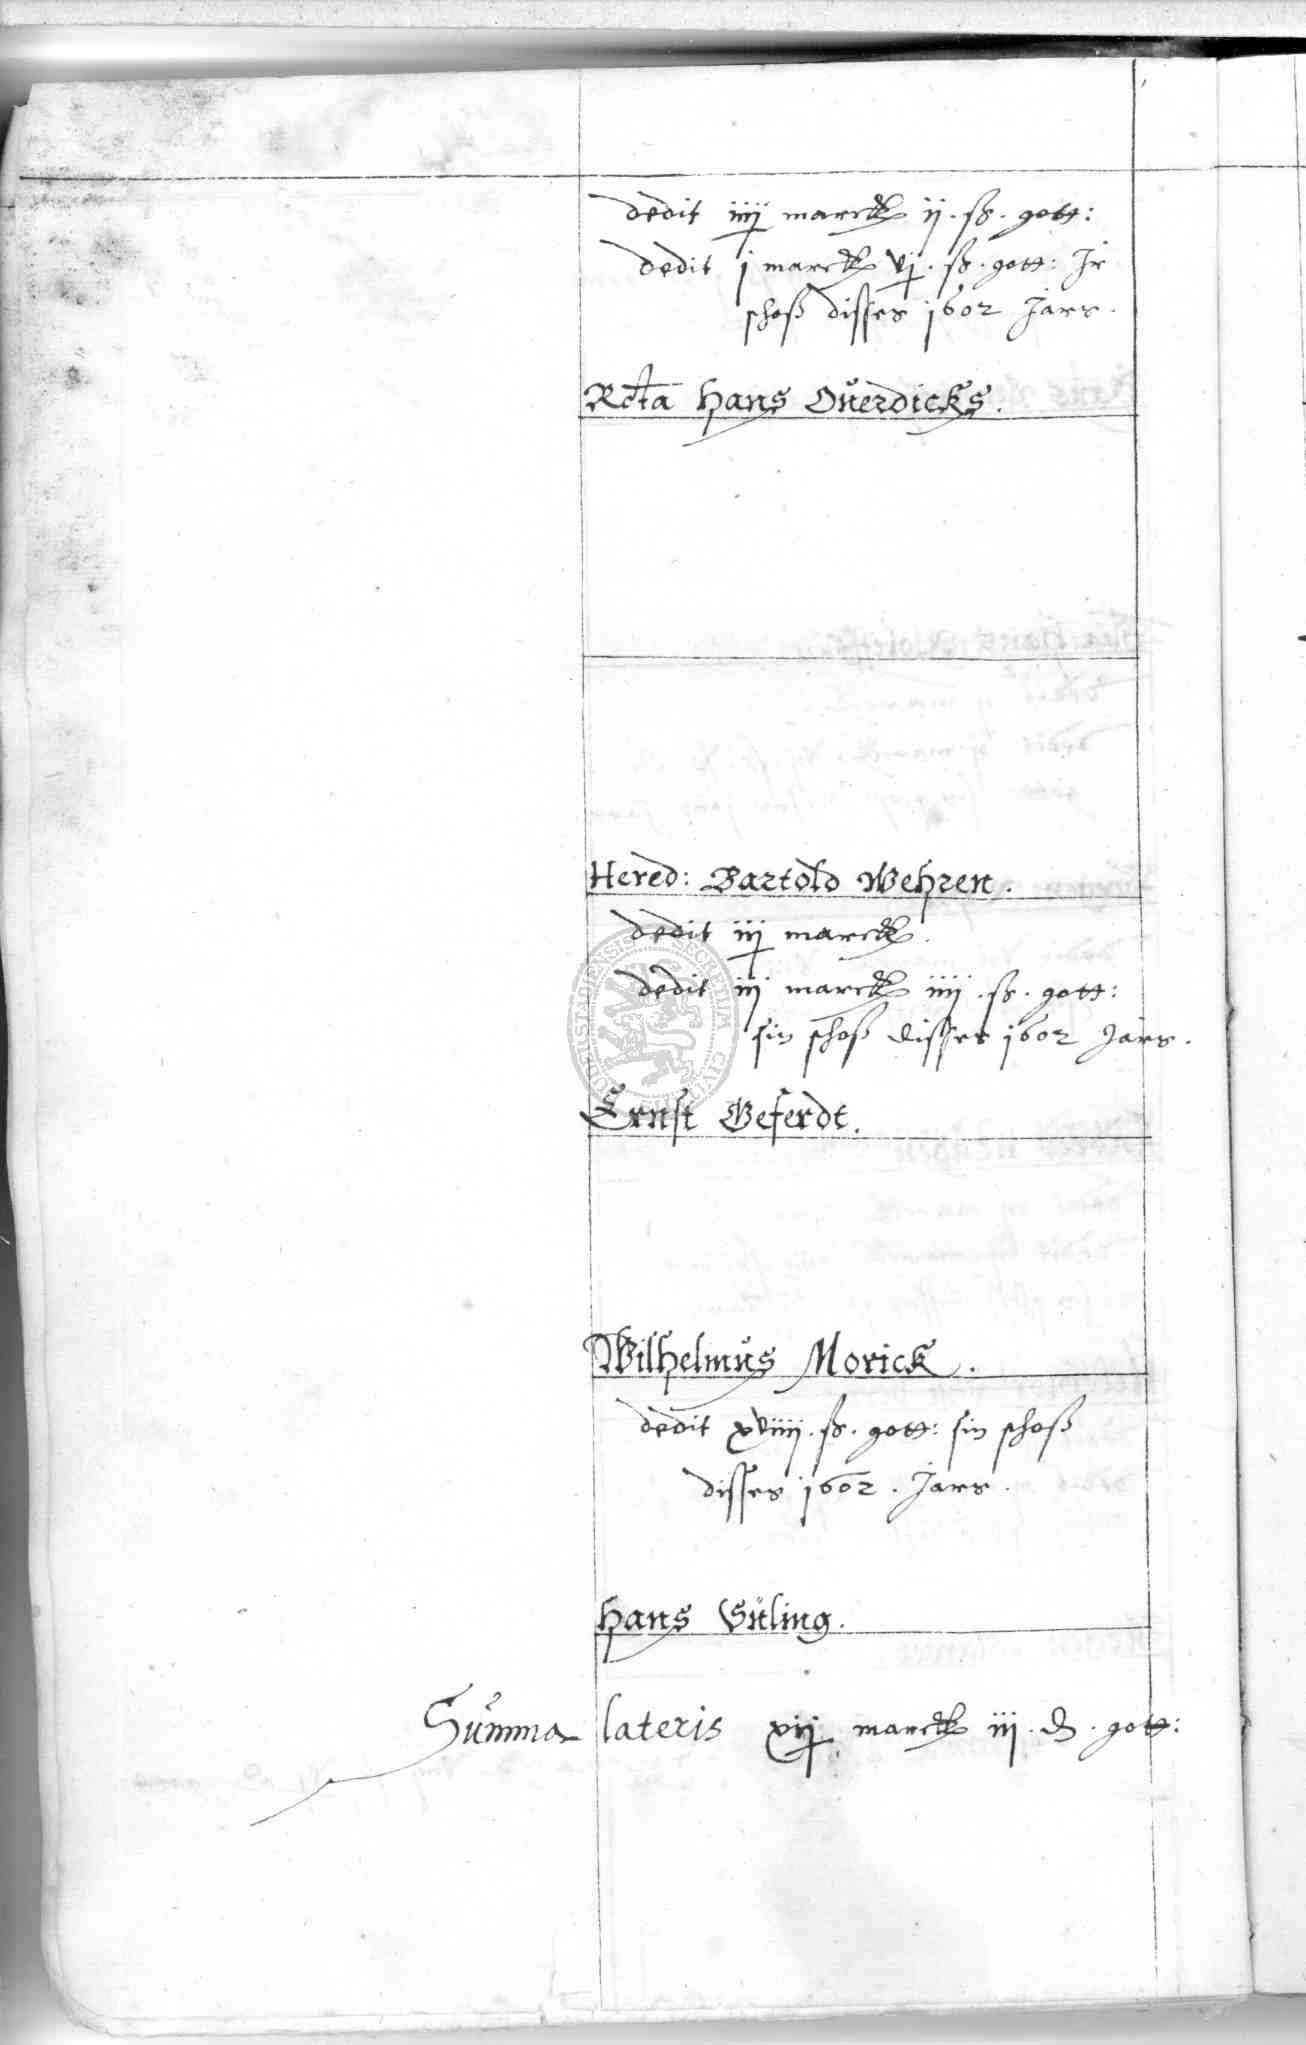 dedit iiij marck ij . ß . gott:
dedit j marck vj . ß . gott: Jr
schoß disses 1602 Jars .
Rcta Hans Ouerdicks .
Hered: Bartold Wehren .
dedit iij marck .
dedit iij marck iiij . ß . gott:
sin schoß disses 1602 Jars .
Ernst Geferdt .
Wilhelmus Morick .
dedit xviiij . ß . gott: sin schoß
disses 1602 . Jars .
Hans Süling .
Summa lateris xij marck iij . d . gott: